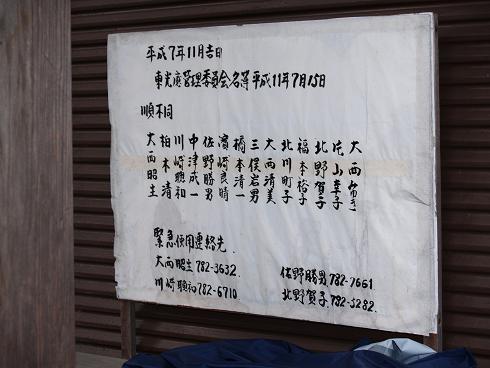 平成7年11月吉日
東光庵管理委員会名簿平成11年7月15日
順不同
大西みゆき
片山幸子
北野賀子
福本裕子
北川町子
大西清美
三俣岩男
橋本清一
濱崎良晴
佐野勝男
中津成一
川崎聰和
柏木清
大西昭生
緊急使用連絡先
大西昭生782-3632
川崎聰和782-6710
佐野勝男782-7661
北野賀子782-3282